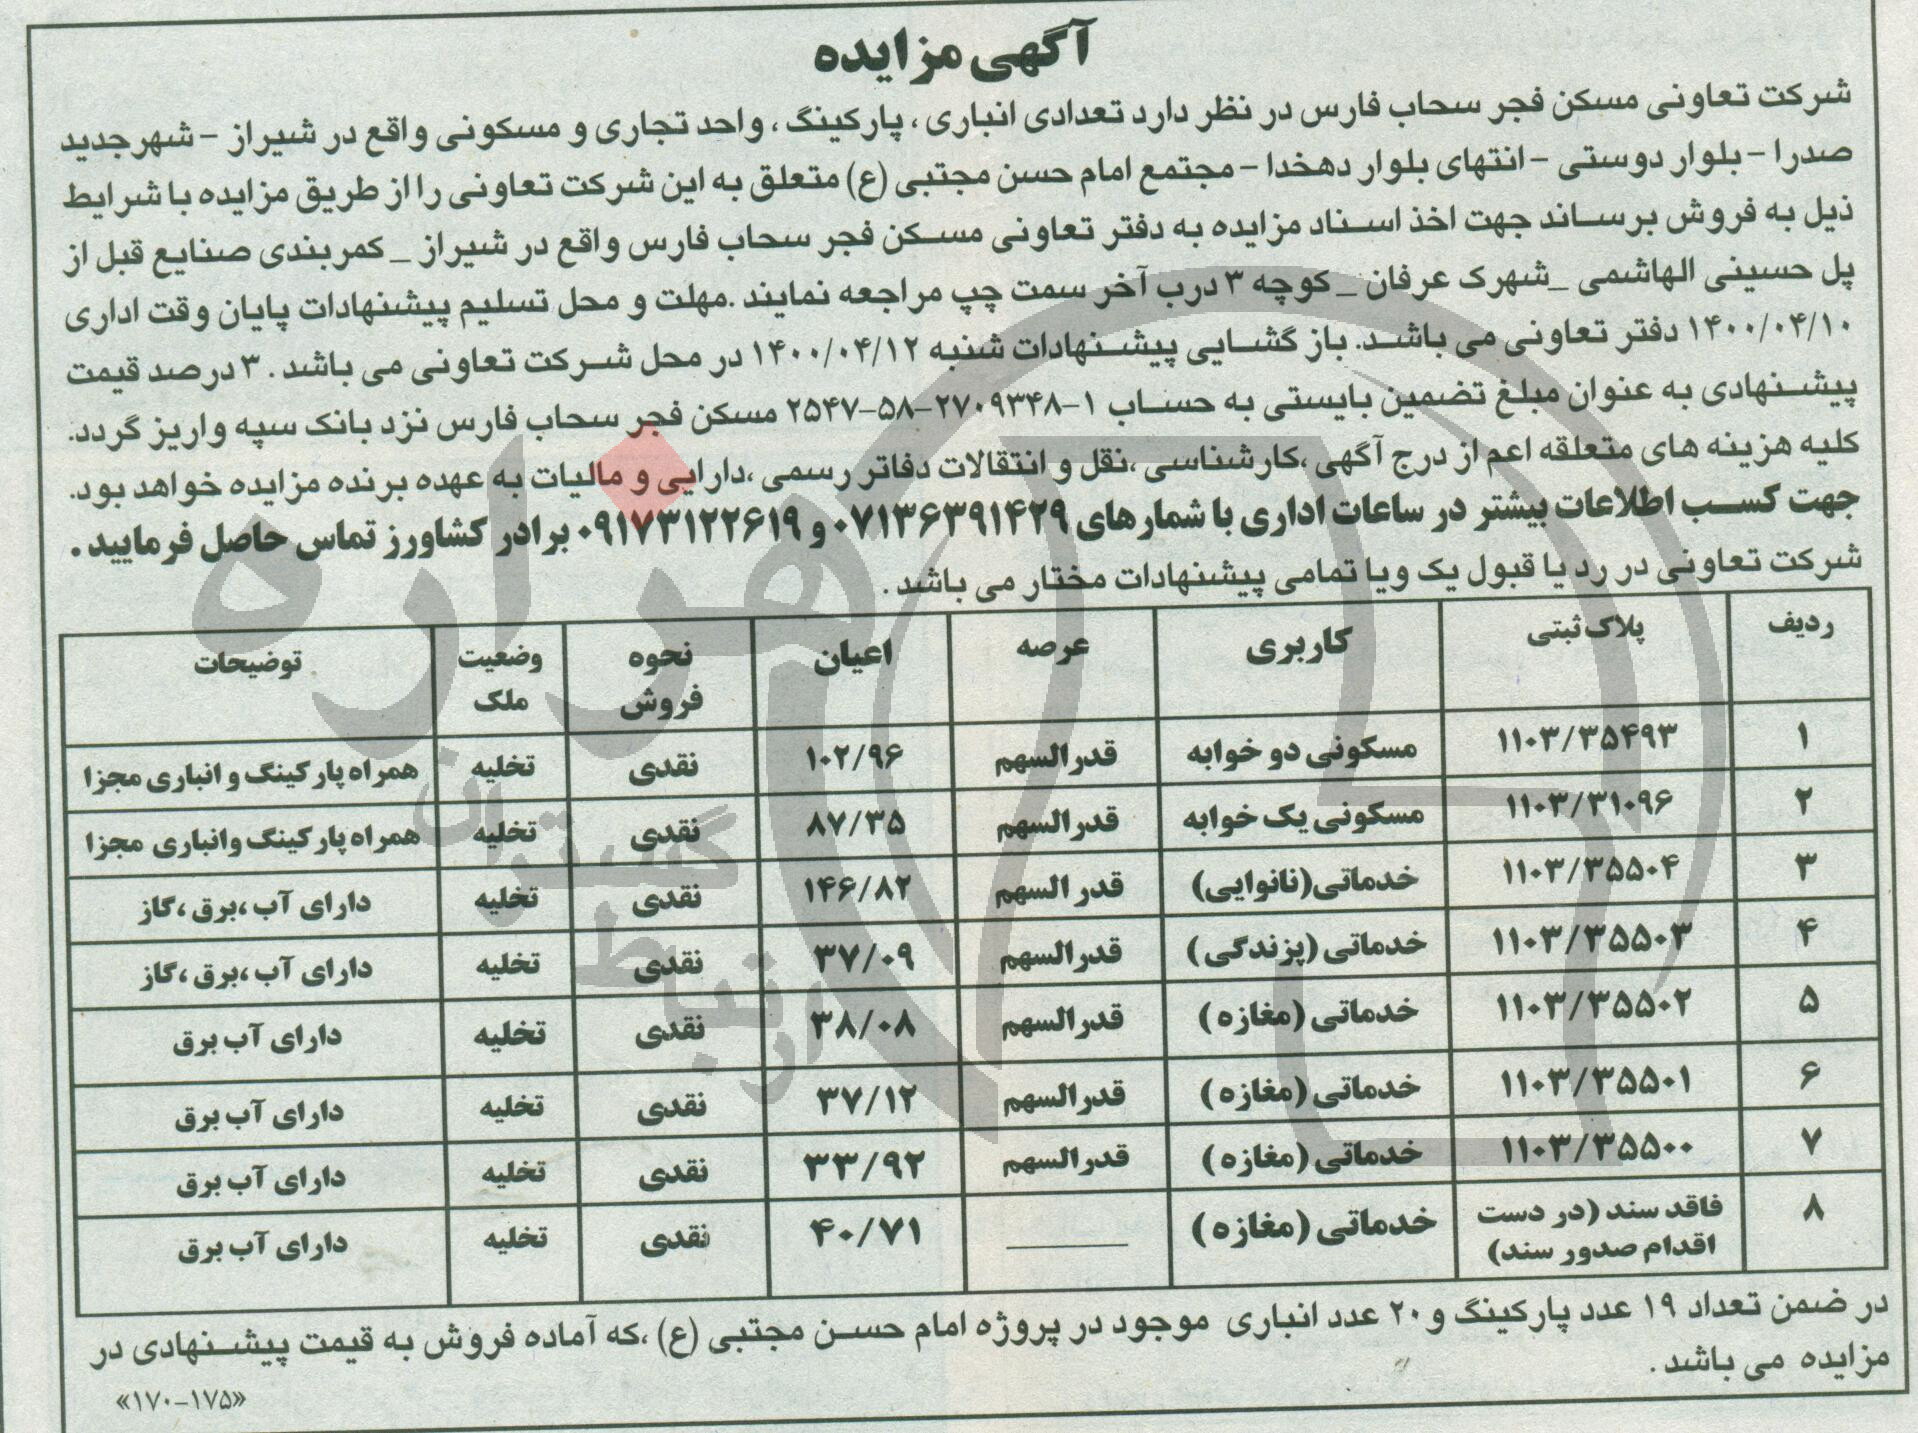 آگهی مزایده
شرکت تعاونی مسکن فجر سحاب فارس در نظر دارد تعدادی انباری، پارکینگ، واحد تجاری و مسکونی واقع در شیراز - شهرجدید
صدرا - بلوار دوستی - انتهای بلوار دهخدا - مجتمع امام حسن مجتبی (ع) متعلق به این شرکت تعاونی را از طریق مزایده با شرایط
ذیل به فروش برساند جهت اخذ اسناد مزایده به دفتر تعاونی مسکن فجر سحاب فارس واقع در شیراز _ کمربندی صنایع قبل از
پل حسینی الهاشمی _شهرک عرفان _ کوچه ۳ درب آخر سمت چپ مراجعه نمایند .مهلت و محل تسلیم پیشنهادات پایان وقت اداری
۱۴۰۰/۰۴/۱۰ دفتر تعاونی می باشد. باز گشایی پیشنهادات شنبه ۱۴۰۰/۰۴/۱۲ در محل شرکت تعاونی می باشد . ۳ درصد قیمت
پیشنهادی به عنوان مبلغ تضمین بایستی به حساب ۱-۲۷۰۹۳۴۸-۵۸-۲۵۴۷ مسکن فجر سحاب فارس نزد بانک سپه واریز گردد.
کلیه هزینه های متعلقه اعم از درج آگهی ،کارشناسی ،نقل و انتقالات دفاتر رسمی ،دارایی و مالیات به عهده برنده مزایده خواهد بود.
جهت کسب اطلاعات بیشتر در ساعات اداری با شمارهای ۰۷۱۳۶۳۹۱۴۲۹ و ۰۹۱۷۳۱۲۲۶۱۹ برادر کشاورز تماس حاصل فرمایید .
شرکت تعاونی در رد یا قبول یک ویا تمامی پیشنهادات مختار می باشد .
ردیف پلاک ثبتی کاربری عرصه اعیان نحوه فروش وضعیت ملک توضیحات
۱ ۱۱۰۳/۳۵۴۹۳ مسکونی دو خوابه قدرالسهم ۱۰۲/۹۶ نقدی تخلیه همراه پارکینگ و انباری مجزا
۲ ۱۱۰۳/۳۱۰۹۶ مسکونی یک خوابه قدرالسهم ۸۷/۳۵ نقدی تخلیه همراه پارکینگ وانباری مجزا
۳ ۱۱۰۳/۳۵۵۰۴ خدماتی(نانوایی) قدر السهم ۱۴۶/۸۲ نقدی تخلیه دارای آب ،برق ،گاز
۴ ۱۱۰۳/۳۵۵۰۳ خدماتی (پزندگی) قدرالسهم ۳۷/۰۹ نقدی تخلیه دارای آب ،برق ،گاز
۵ ۱۱۰۳/۳۵۵۰۲ خدماتی (مغازه) قدرالسهم ۳۸/۰۸ نقدی تخلیه دارای آب برق
۶ ۱۱۰۳/۳۵۵۰۱ خدماتی (مغازه) قدرالسهم ۳۷/۱۲ نقدی تخلیه دارای آب برق
۷ ۱۱۰۳/۳۵۵۰۰ خدماتی (مغازه) قدرالسهم ۳۳/۹۲ نقدی تخلیه دارای آب برق
۸ فاقد سند (در دست اقدام صدور سند) خدماتی (مغازه) ـــــــ ۴۰/۷۱ نقدی تخلیه دارای آب برق
در ضمن تعداد ۱۹ عدد پارکینگ و ۲۰ عدد انباری موجود در پروژه امام حسن مجتبی (ع) ،که آماده فروش به قیمت پیشنهادی در
مزایده می باشد .
«۱۷۰-۱۷۵»
هزاره
گستران
ارتباط